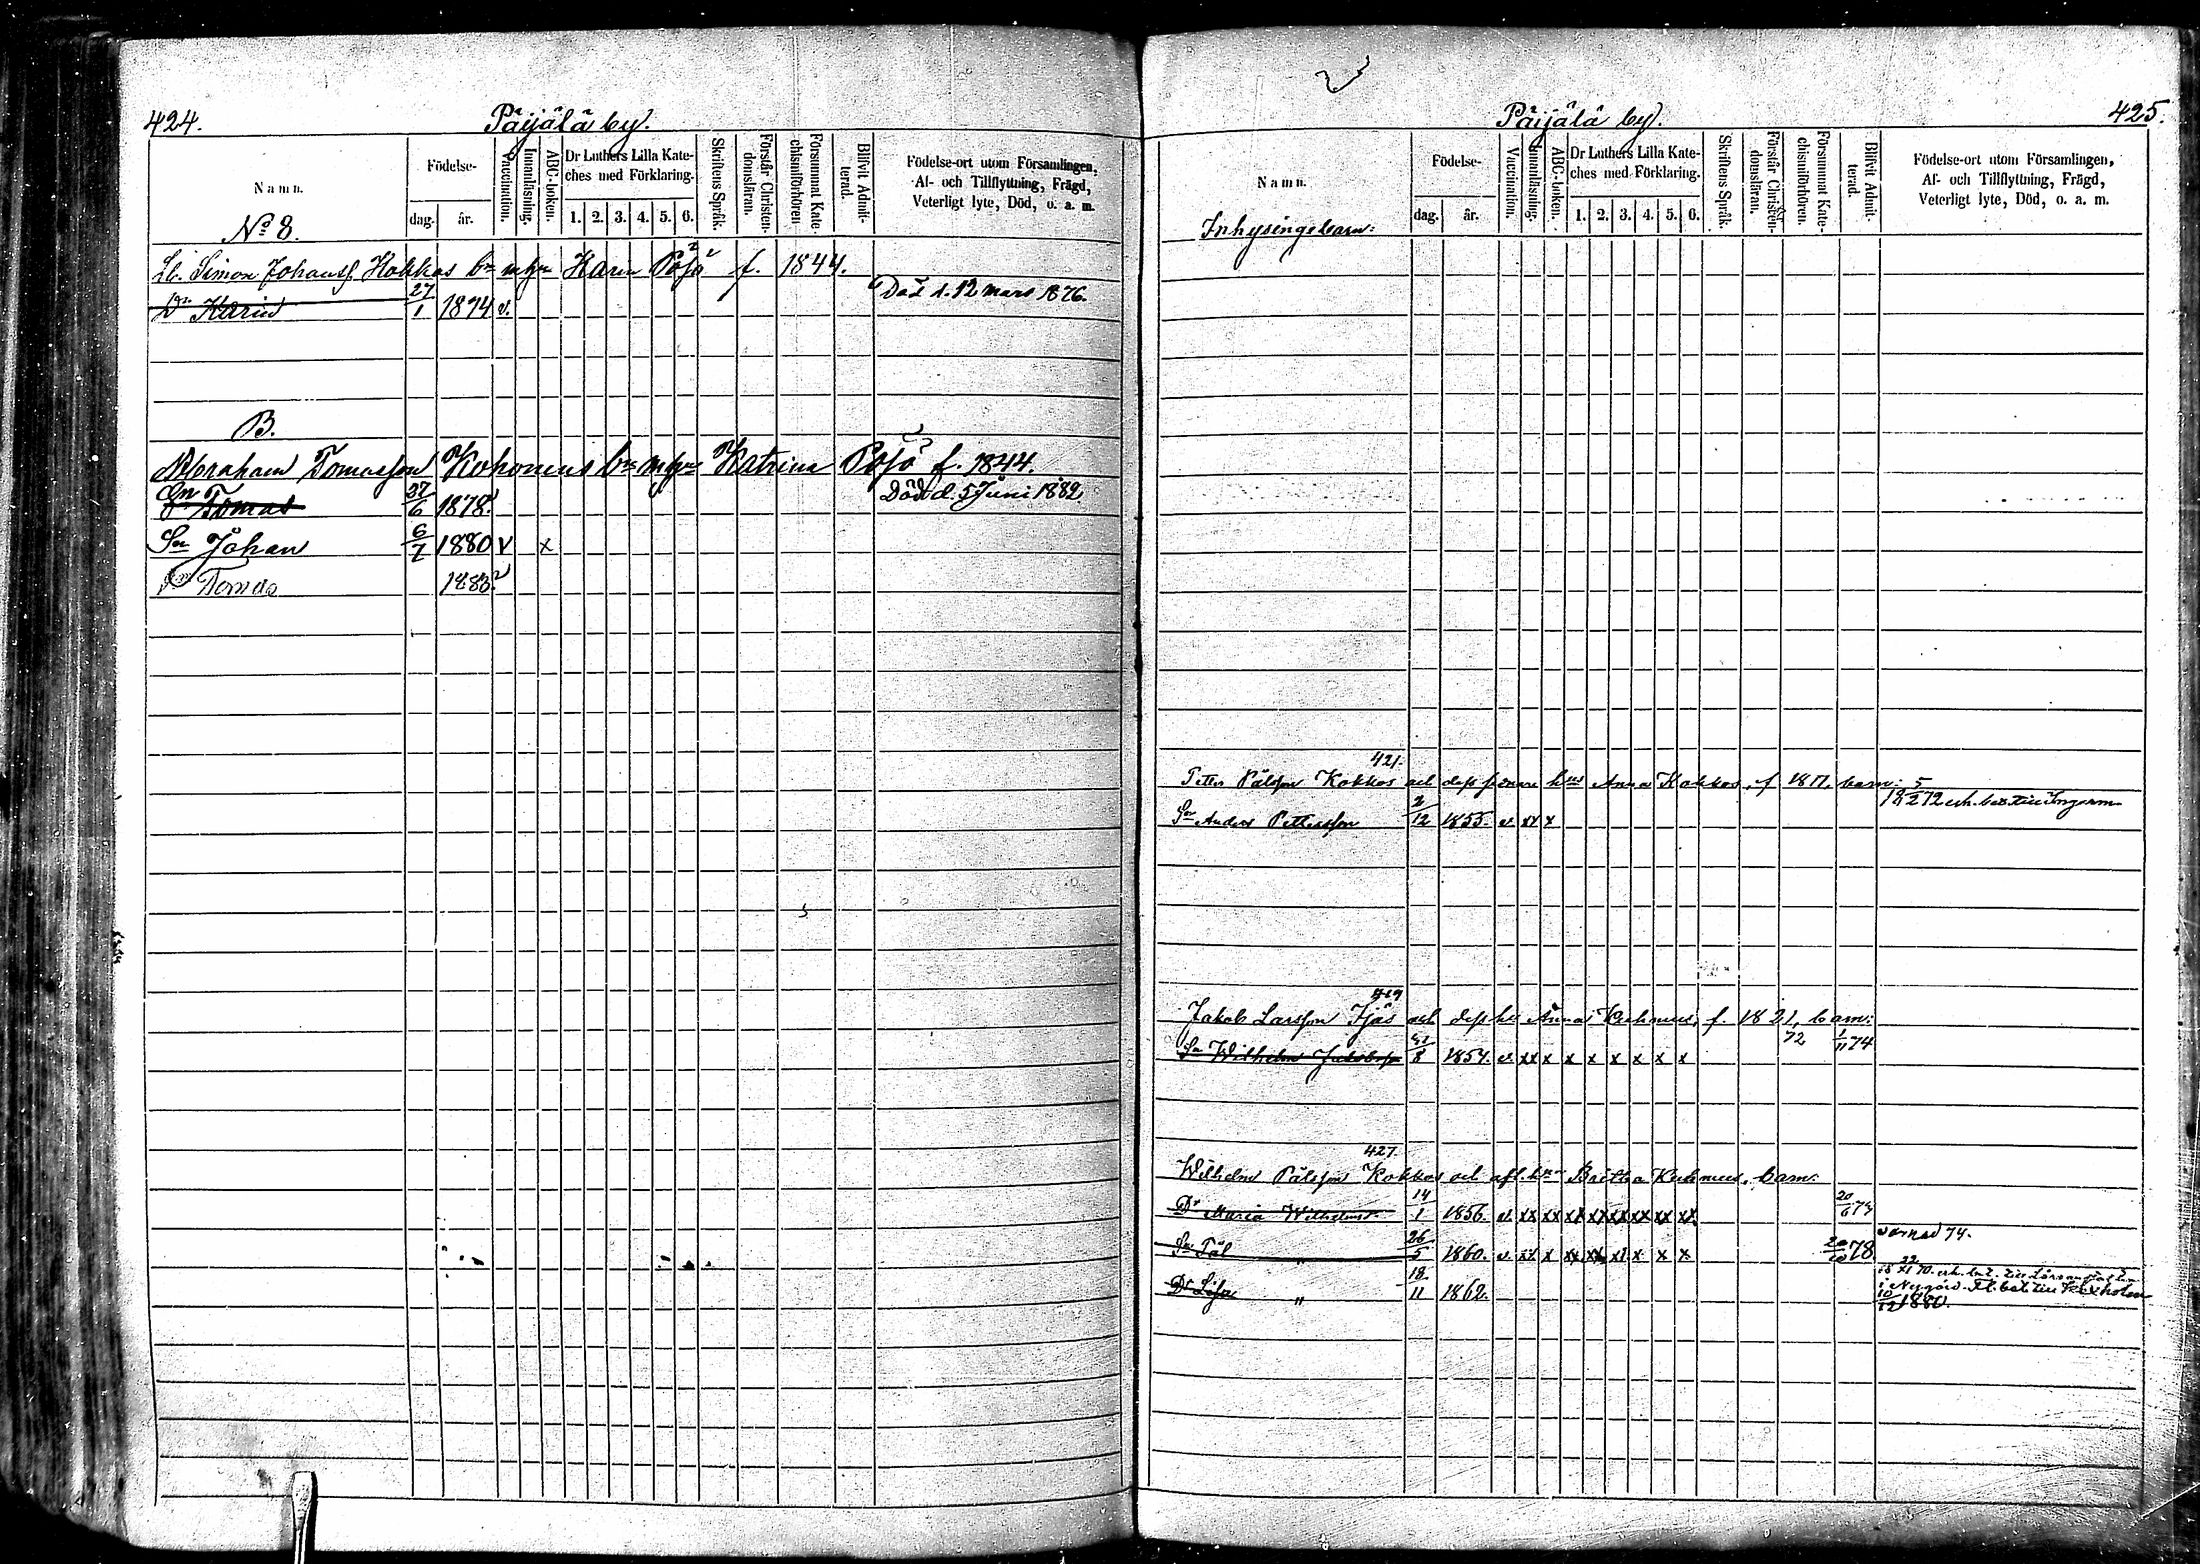 424. Päijälä by.
Namn.
Födelse-
dag. år.
Vaccination.
Innanläsning.
ABC-boken.
Dr Luthers Lilla Kate-
ches med Förklaring.
1. 2. 3. 4. 5. 6.
Skriftens Språk.
Förstår Christen-
domsläran.
Försummat Kate-
chismiförhören
Blifvit Admit-
terad.
Födelse-ort utom Församlingen,
Af- och Tillflyttning, Frägd,
Veterligt lyte, Död, o. a. m.
No 8.
Simon Johanss. Kokkos bn m hu Karin Pojo f. 1844.
Dr Karin 27/1 1874 v. Död d. 12 mars 1876.
B.
Abraham Tomasson Kohonens bn m hu Katrina Pojo f. 1844.
Sn Tomas 27/6 1878. Död d. 5 Juni 1882
Sn Johan 6/7 1880 v x
Sn Tomas 1883.
Päijälä by. 425.
Namn.
Födelse-
dag. år.
Vaccination.
Innanläsning.
ABC-boken.
Dr Luthers Lilla Kate-
ches med Förklaring.
1. 2. 3. 4. 5. 6.
Skriftens Språk.
Förstår Christen-
domsläran.
Försummat Kate-
chismiförhören.
Blifvit Admit-
terad.
Födelse-ort utom Församlingen,
Af- och Tillflyttning, Frägd,
Veterligt lyte, Död, o. a. m.
Inhysingebarn:
421.
Petter Pålsson Kokkos och dess senare hus Anna Kokkos, f 1817, barn:
Sn Anders Pettersson 2/12 1855. v xx x
419
Jakob Larsson Ijäs och dess hu Anna Kuhmus, f. 1821, barn:
Sn Wilhelm Jakobss 8 1854. v xx x x x x x x x 72 1/11 74
427.
Wilhelm Pålsson Kokkos och afl. hus Britha Kuhmus, barn:
Dr Maria Wilhelmsr 14/1 1856. v xx xx xx xx xx xx xx xx 20/6 73
Sn Pål " 26/5 1860. v xx x xx xx xx x x x 20/10 78
Dr Lisa " 18/11 1862. 10/12 1880.